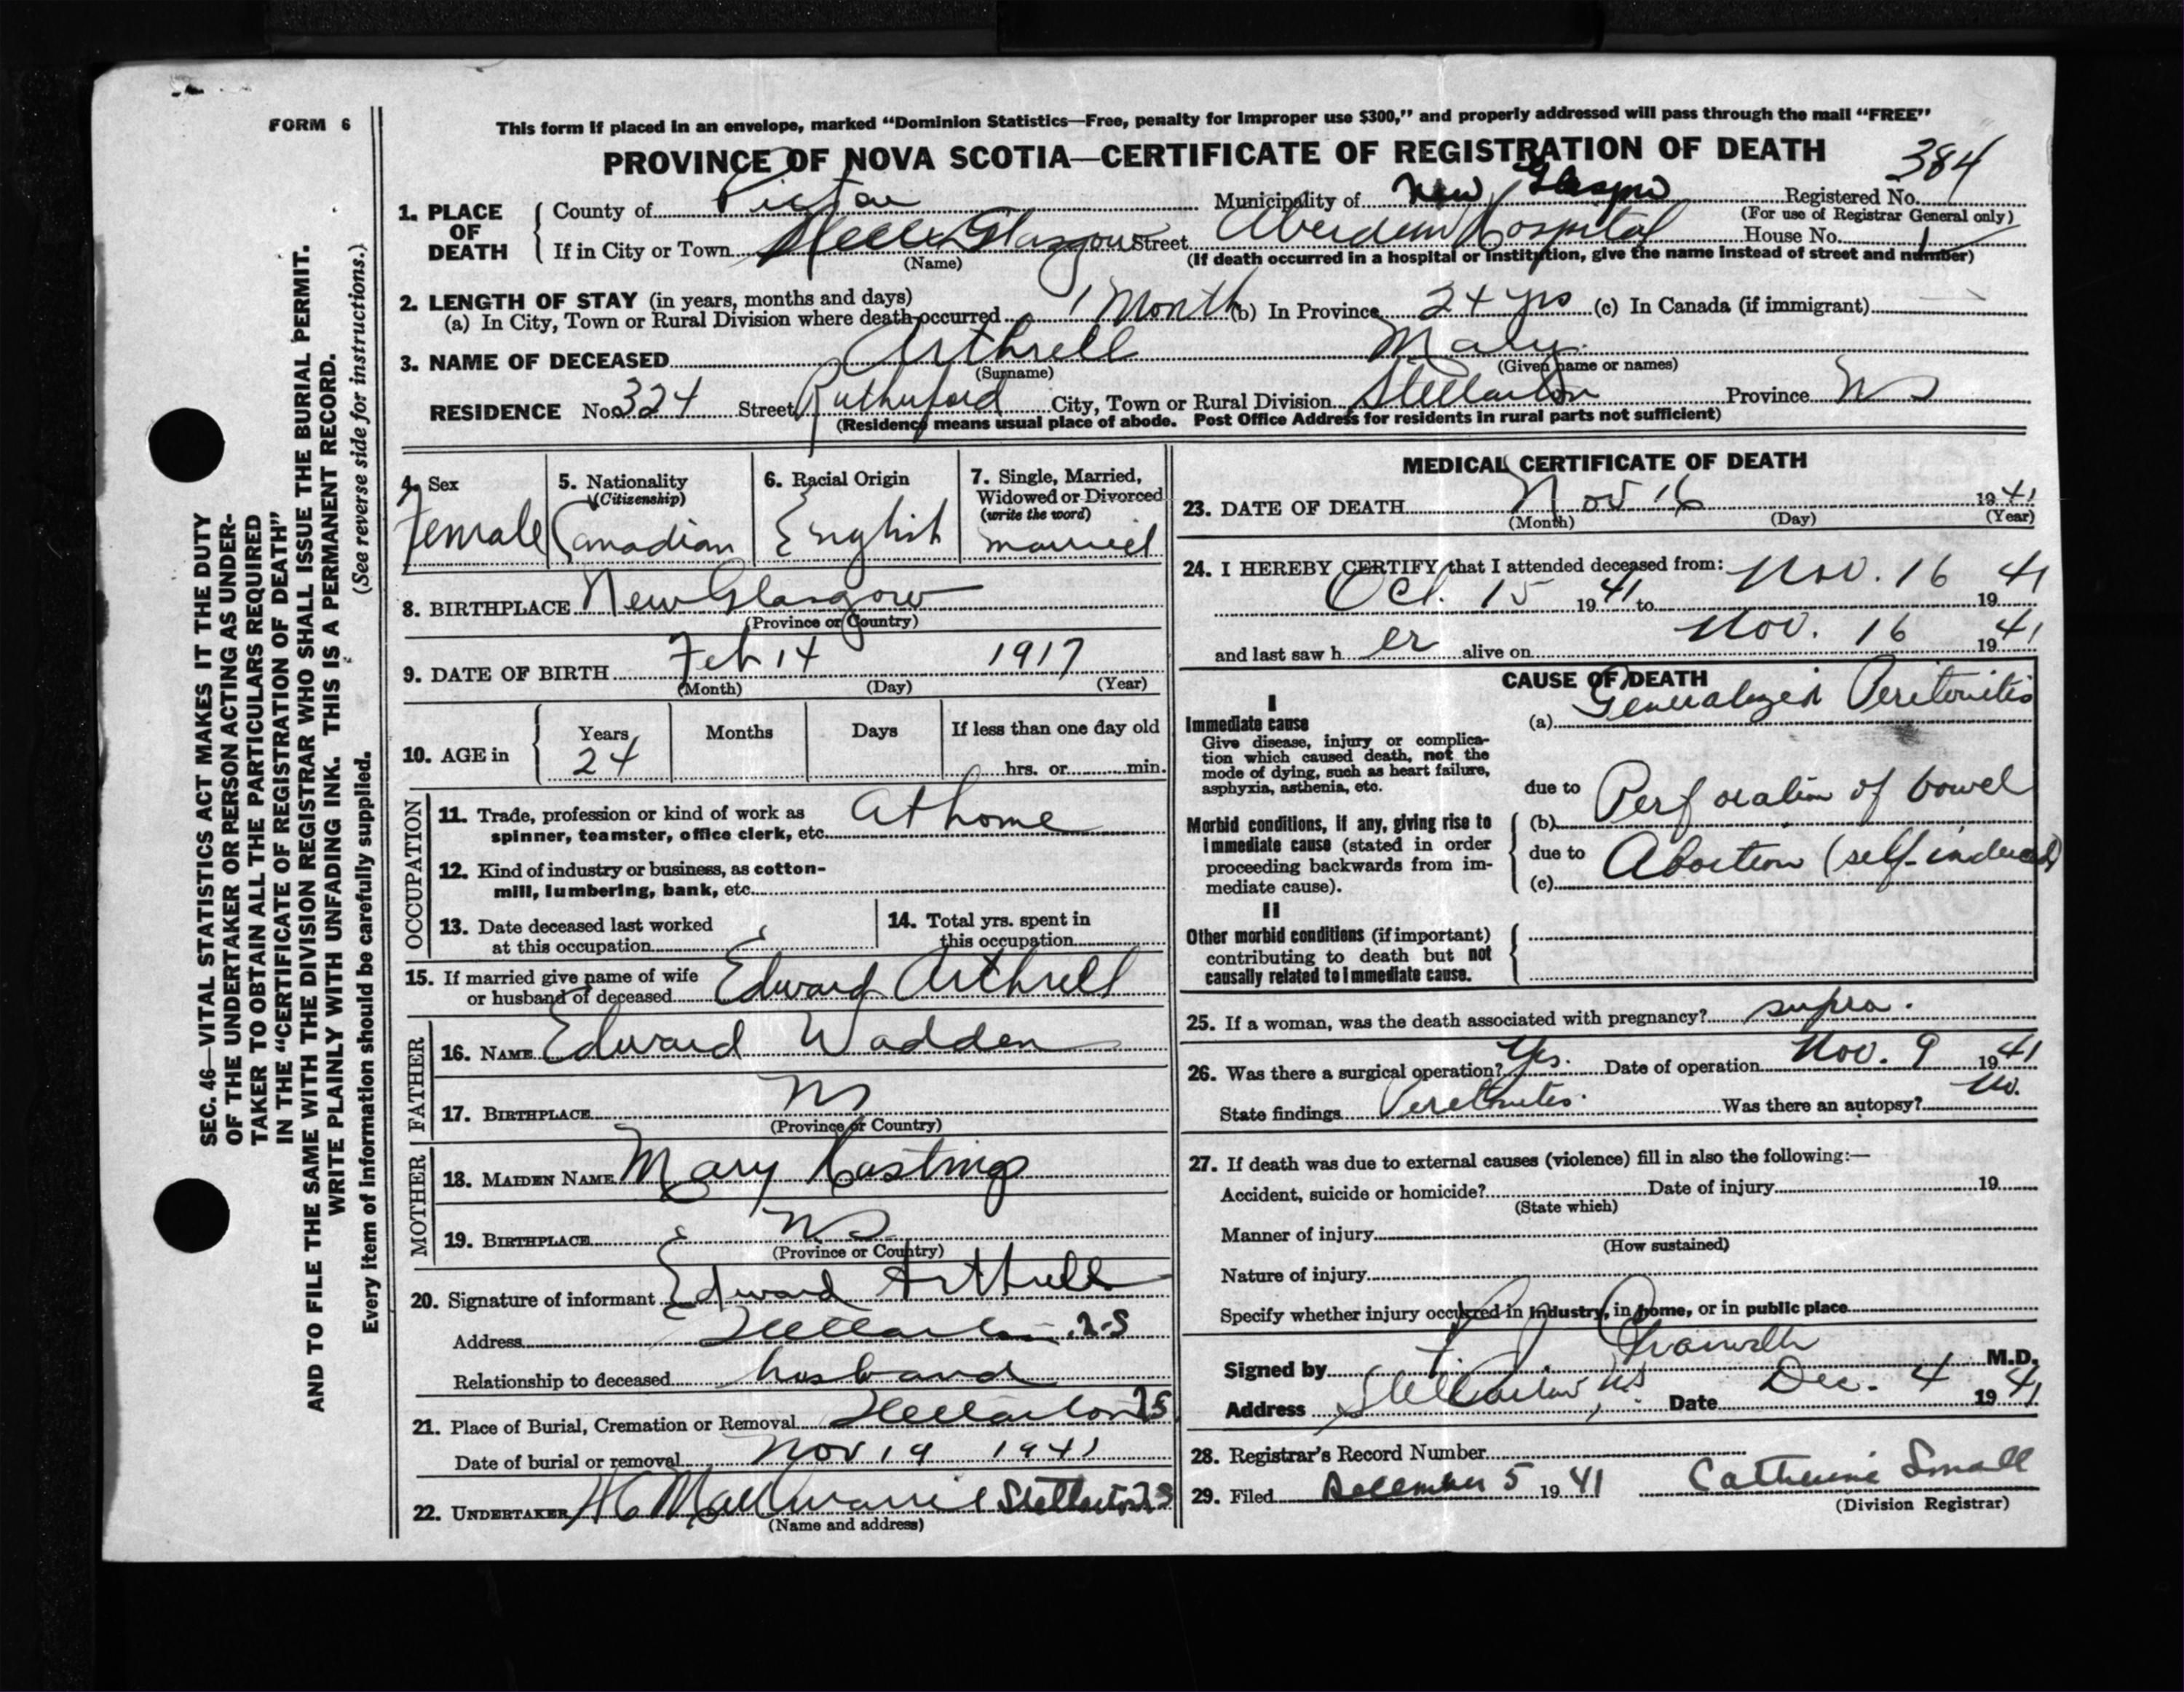 FORM 6
This form if placed in an envelope, marked “Dominion Statistics—Free, penalty for improper use $300,” and properly addressed will pass through the mail “FREE”
PROVINCE OF NOVA SCOTIA—CERTIFICATE OF REGISTRATION OF DEATH
384
1. PLACE OF DEATH
County of Pictou Municipality of New Glasgow Registered No.
(For use of Registrar General only)
If in City or Town New Glasgow Street Aberdeen Hospital House No.
(Name) (If death occurred in a hospital or institution, give the name instead of street and number)
2. LENGTH OF STAY (in years, months and days)
(a) In City, Town or Rural Division where death occurred 1 Month (b) In Province 24 yrs (c) In Canada (if immigrant) —
3. NAME OF DECEASED Arthrell Mary
(Surname) (Given name or names)
RESIDENCE No. 324 Street Rutherford City, Town or Rural Division Stellarton Province NS
(Residence means usual place of abode. Post Office Address for residents in rural parts not sufficient)
4. Sex
Female
5. Nationality
(Citizenship)
Canadian
6. Racial Origin
English
7. Single, Married,
Widowed or Divorced
(write the word)
married
8. BIRTHPLACE New Glasgow
(Province or Country)
9. DATE OF BIRTH Feb 14 1917
(Month) (Day) (Year)
10. AGE in
Years Months Days If less than one day old
24 hrs. or min.
OCCUPATION
11. Trade, profession or kind of work as
spinner, teamster, office clerk, etc. At home
12. Kind of industry or business, as cotton-
mill, lumbering, bank, etc.
13. Date deceased last worked
at this occupation
14. Total yrs. spent in
this occupation
15. If married give name of wife
or husband of deceased Edward Arthrell
FATHER
16. NAME Edward Wadden
17. BIRTHPLACE NS
(Province or Country)
MOTHER
18. MAIDEN NAME Mary Hastings
19. BIRTHPLACE NS
(Province or Country)
20. Signature of informant Edward Arthrell
Address Stellarton N.S
Relationship to deceased husband
21. Place of Burial, Cremation or Removal Stellarton NS
Date of burial or removal Nov 19 1941
22. UNDERTAKER Stellarton NS
(Name and address)
MEDICAL CERTIFICATE OF DEATH
23. DATE OF DEATH Nov 16 1941
(Month) (Day) (Year)
24. I HEREBY CERTIFY that I attended deceased from:
Oct. 15 1941 to Nov. 16 1941
and last saw her alive on Nov. 16 1941
CAUSE OF DEATH
I
Immediate cause
Give disease, injury or complica-
tion which caused death, not the
mode of dying, such as heart failure,
asphyxia, asthenia, etc.
(a) Generalized Peritonitis
due to
Morbid conditions, if any, giving rise to
immediate cause (stated in order
proceeding backwards from im-
mediate cause).
(b) Perforation of bowel
due to
(c) Abortion (self-induced)
II
Other morbid conditions (if important)
contributing to death but not
causally related to immediate cause.
25. If a woman, was the death associated with pregnancy? supra.
26. Was there a surgical operation? Yes. Date of operation Nov. 9 1941
State findings Peritonitis. Was there an autopsy? no.
27. If death was due to external causes (violence) fill in also the following:—
Accident, suicide or homicide? Date of injury 19
(State which)
Manner of injury
(How sustained)
Nature of injury
Specify whether injury occurred in industry, in home, or in public place
Signed by M.D.
Address Stellarton, N.S. Date Dec. 4 1941
28. Registrar's Record Number
29. Filed December 5 1941 Catherine Small
(Division Registrar)
SEC. 46—VITAL STATISTICS ACT MAKES IT THE DUTY
OF THE UNDERTAKER OR PERSON ACTING AS UNDER-
TAKER TO OBTAIN ALL THE PARTICULARS REQUIRED
IN THE “CERTIFICATE OF REGISTRATION OF DEATH”
AND TO FILE THE SAME WITH THE DIVISION REGISTRAR WHO SHALL ISSUE THE BURIAL PERMIT.
WRITE PLAINLY WITH UNFADING INK. THIS IS A PERMANENT RECORD.
Every item of information should be carefully supplied. (See reverse side for instructions.)